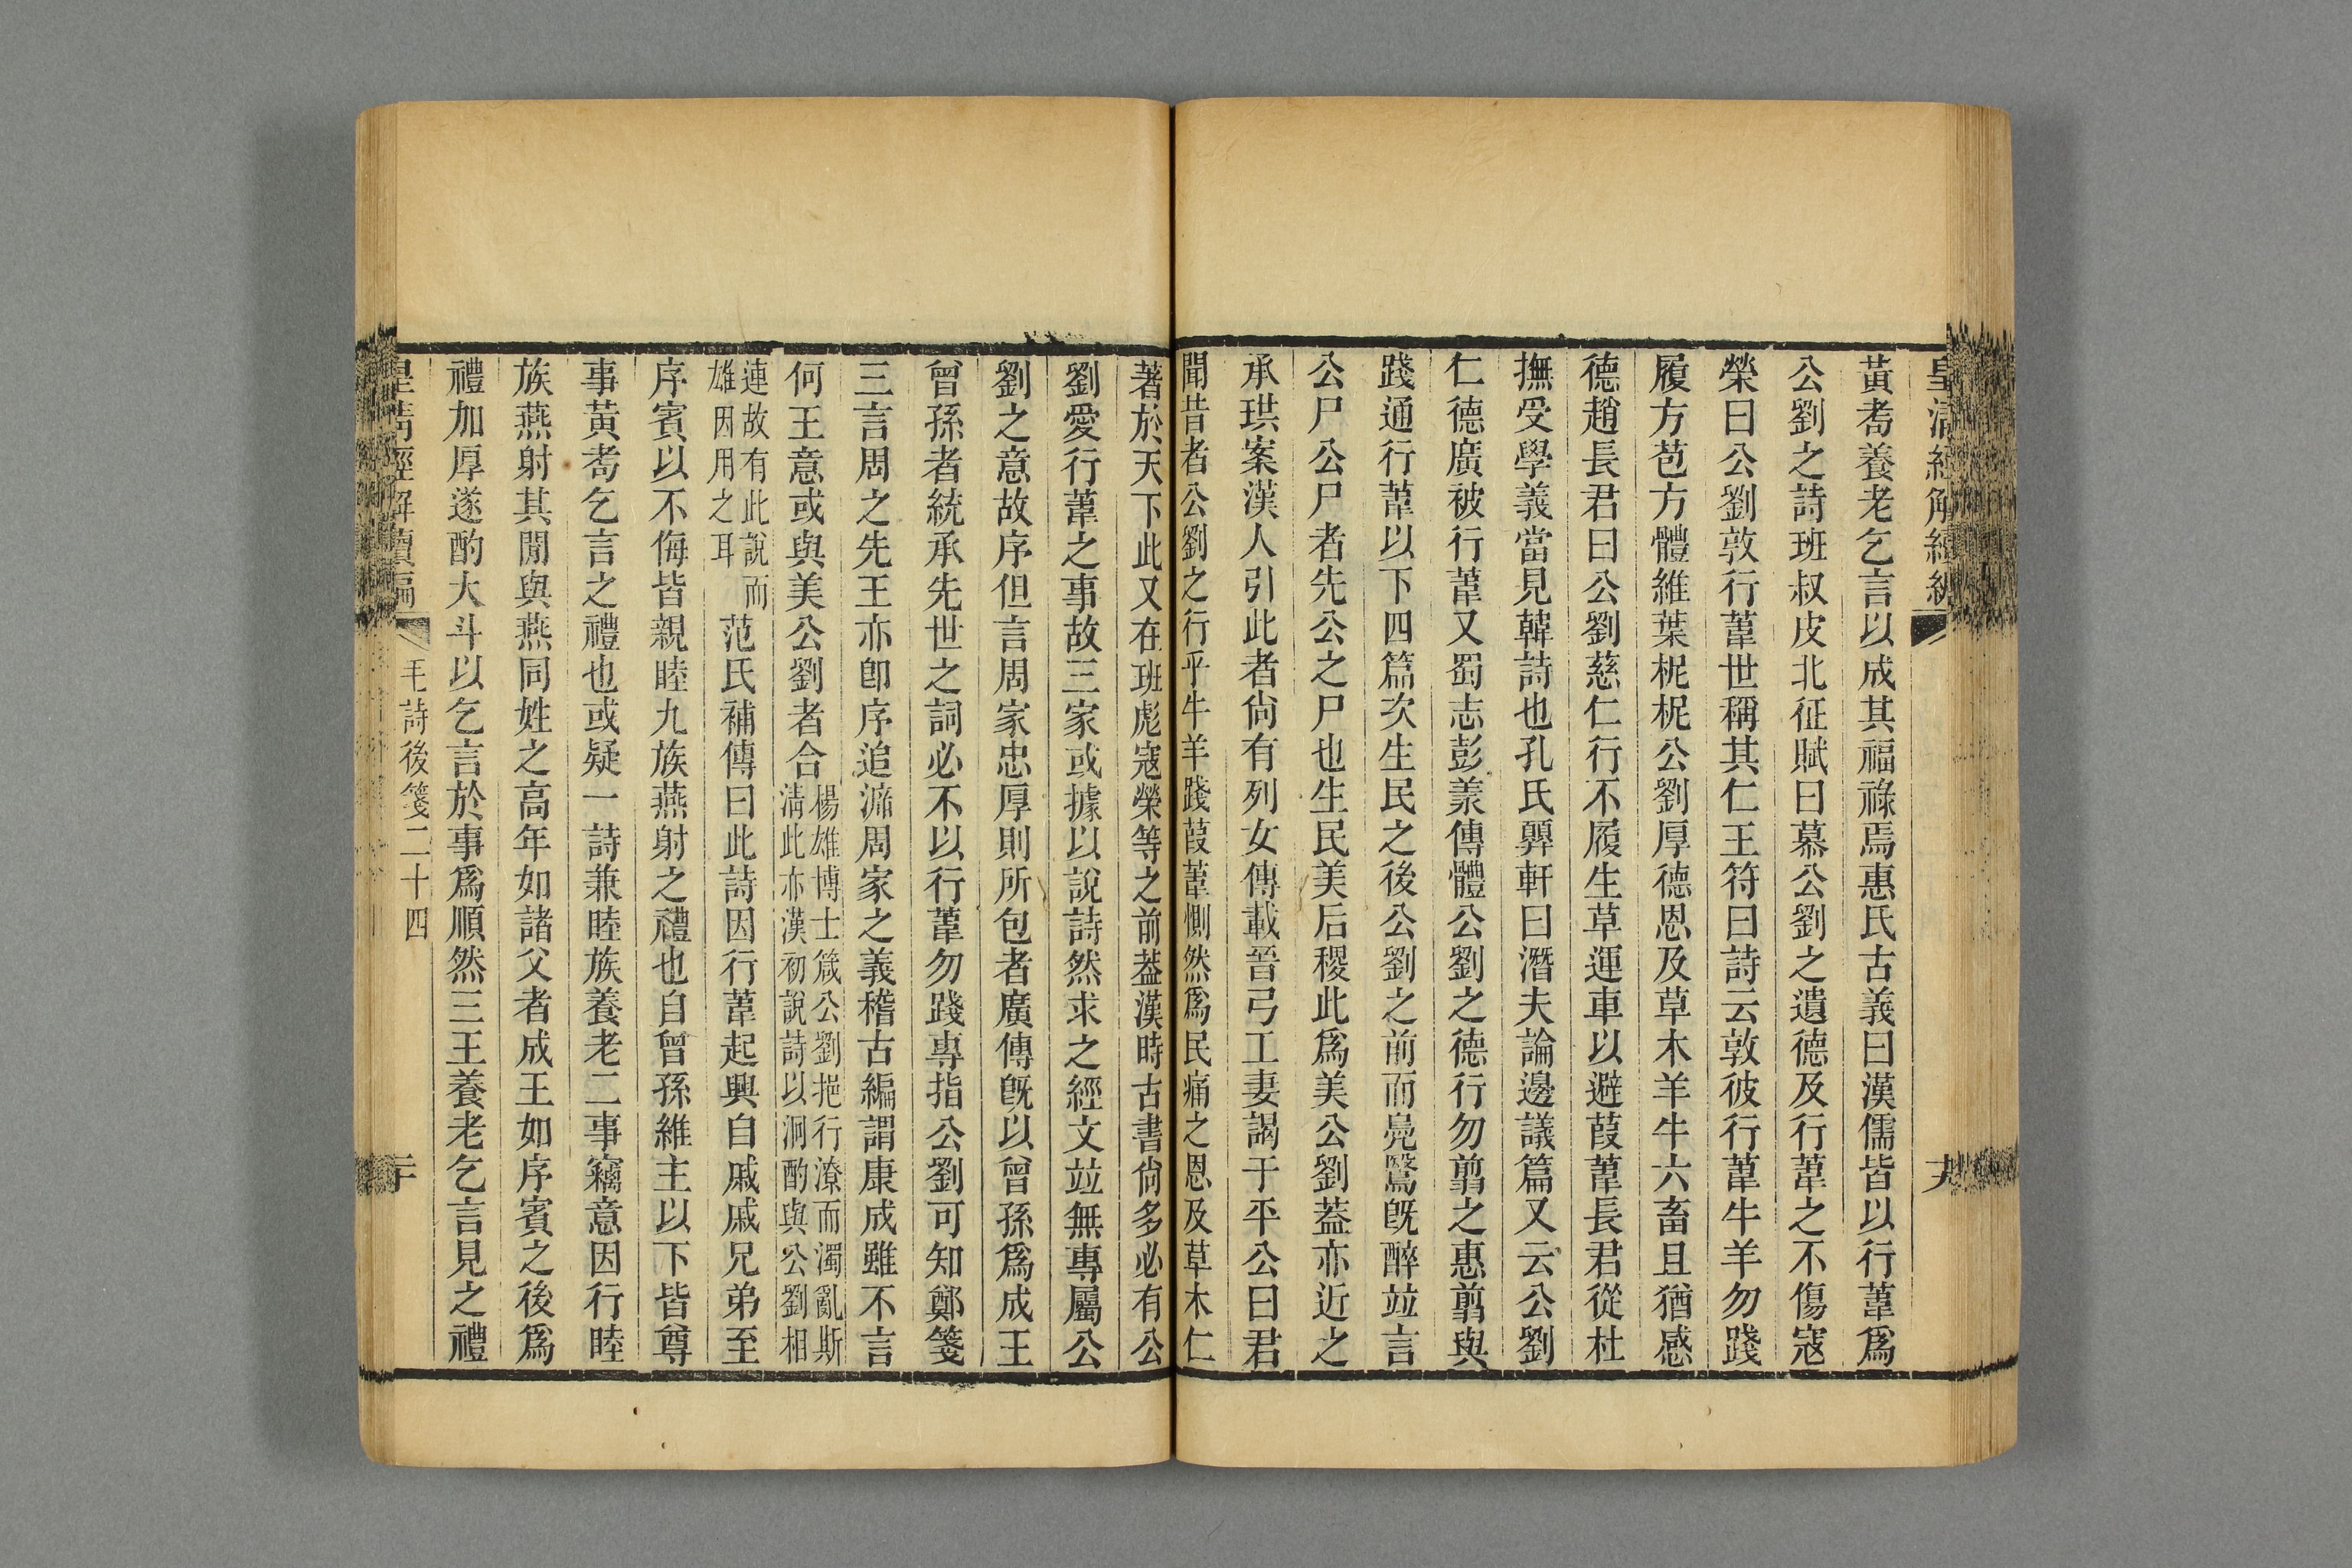 皇清經解續編
十九
黃耉養老乞言以成其福祿焉惠氏古義曰漢儒皆以行葦爲
公劉之詩班叔皮北征賦曰慕公劉之遺德及行葦之不傷寇
榮曰公劉敦行葦世稱其仁王符曰詩云敦彼行葦牛羊勿踐
履方苞方體維葉柅柅公劉厚德恩及草木羊牛六畜且猶感
德趙長君曰公劉慈仁行不履生草運車以避葭葦長君從杜
撫受學義當見韓詩也孔氏㢲軒曰潛夫論邊議篇又云公劉
仁德廣被行葦又蜀志彭羕傳體公劉之德行勿翦之惠翦與
踐通行葦以下四篇次生民之後公劉之前而鳧鷖旣醉竝言
公尸公尸者先公之尸也生民美后稷此爲美公劉葢亦近之
承珙案漢人引此者尙有列女傳載晉弓工妻謁于平公曰君
聞昔者公劉之行乎牛羊踐葭葦惻然爲民痛之恩及草木仁
著於天下此又在班彪寇榮等之前葢漢時古書尙多必有公
劉愛行葦之事故三家或據以說詩然求之經文竝無專屬公
劉之意故序但言周家忠厚則所包者廣傳旣以曾孫爲成王
曾孫者統承先世之詞必不以行葦勿踐專指公劉可知鄭箋
三言周之先王亦卽序追遡周家之義稽古編謂康成雖不言
何王意或與美公劉者合楊雄博士箴公劉挹行潦而濁亂斯
淸此亦漢初說詩以泂酌與公劉相
連故有此說而
雄因用之耳范氏補傳曰此詩因行葦起興自戚戚兄弟至
序賓以不侮皆親睦九族燕射之禮也自曾孫維主以下皆尊
事黃耉乞言之禮也或疑一詩兼睦族養老二事竊意因行睦
族燕射其閒與燕同姓之高年如諸父者成王如序賓之後爲
禮加厚遂酌大斗以乞言於事爲順然三王養老乞言見之禮
皇清經解續編
毛詩後箋二十四
二十